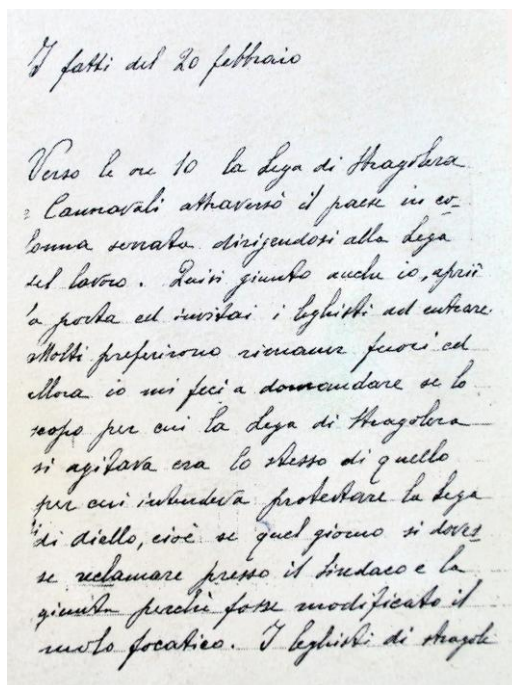 I fatti del 20 febbraio
Verso le ore 10 la Lega di Stragolera
e Cannavali attraversò il paese in co-
lonna serrata dirigendosi alla Lega
del lavoro. Quivi giunto anche io, aprii
la porta ed invitai i leghisti ad entrare.
Molti preferirono rimaner fuori ed
allora io mi feci a domandare se lo
scopo per cui la Lega di Stragolera
si agitava era lo stesso di quello
per cui intendeva protestare la Lega
di diello, cioè se quel giorno si doves-
se reclamare presso il Sindaco e la
giunta perchè fosse modificato il
ruolo focatico. I leghisti di stragole